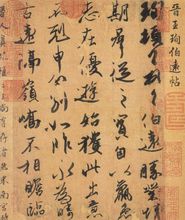 晉王珣伯遠帖
珣頓首頓首伯遠勝業情
期群從之寶自以羸患
志在優遊始獲此出意
不剋申分別如昨永為疇
古遠隔嶺嶠不相瞻臨
尚有存者然米南